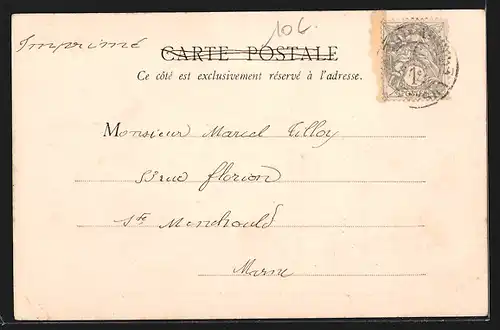 10 c.
Imprimé
CARTE POSTALE
Ce côté est exclusivement réservé à l'adresse.
1c
Monsieur Marcel Tilloy
53 rue florion
Ste Menehould
Marne